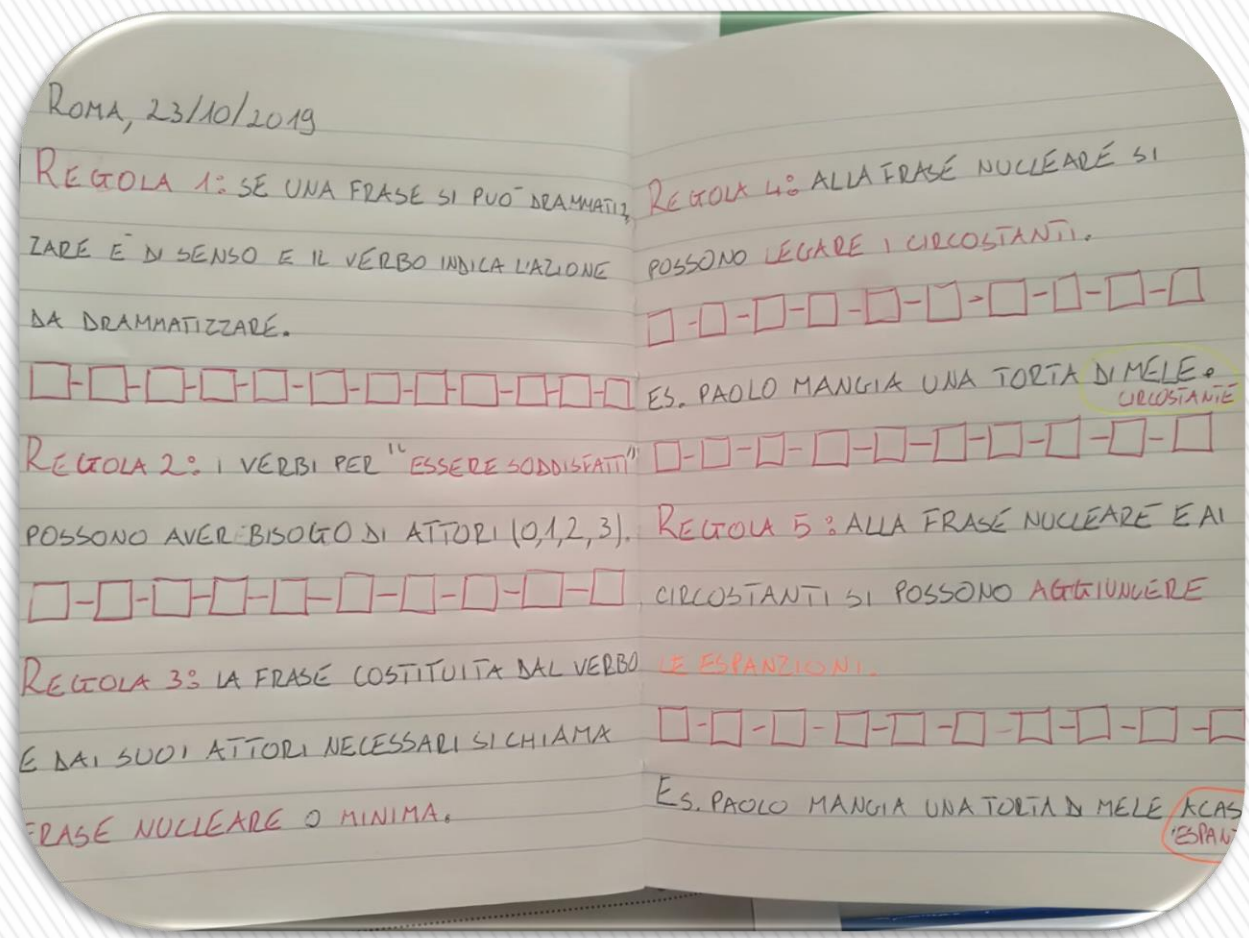 ROMA, 23/10/2019
REGOLA 1: SE UNA FRASE SI PUÒ DRAMMATIZ
ZARE È DI SENSO E IL VERBO INDICA L'AZIONE
DA DRAMMATIZZARE.
REGOLA 2: I VERBI PER "ESSERE SODDISFATTI"
POSSONO AVER BISOGO DI ATTORI (0,1,2,3).
REGOLA 3: LA FRASE COSTITUITA DAL VERBO
E DAI SUOI ATTORI NECESSARI SI CHIAMA
FRASE NUCLEARE O MINIMA.
REGOLA 4: ALLA FRASE NUCLEARE SI
POSSONO LEGARE I CIRCOSTANTI.
ES. PAOLO MANGIA UNA TORTA DI MELE.
CIRCOSTANTE
REGOLA 5: ALLA FRASE NUCLEARE E AI
CIRCOSTANTI SI POSSONO AGGIUNGERE
LE ESPANZIONI.
ES. PAOLO MANGIA UNA TORTA DI MELE A CAS
ESPAN